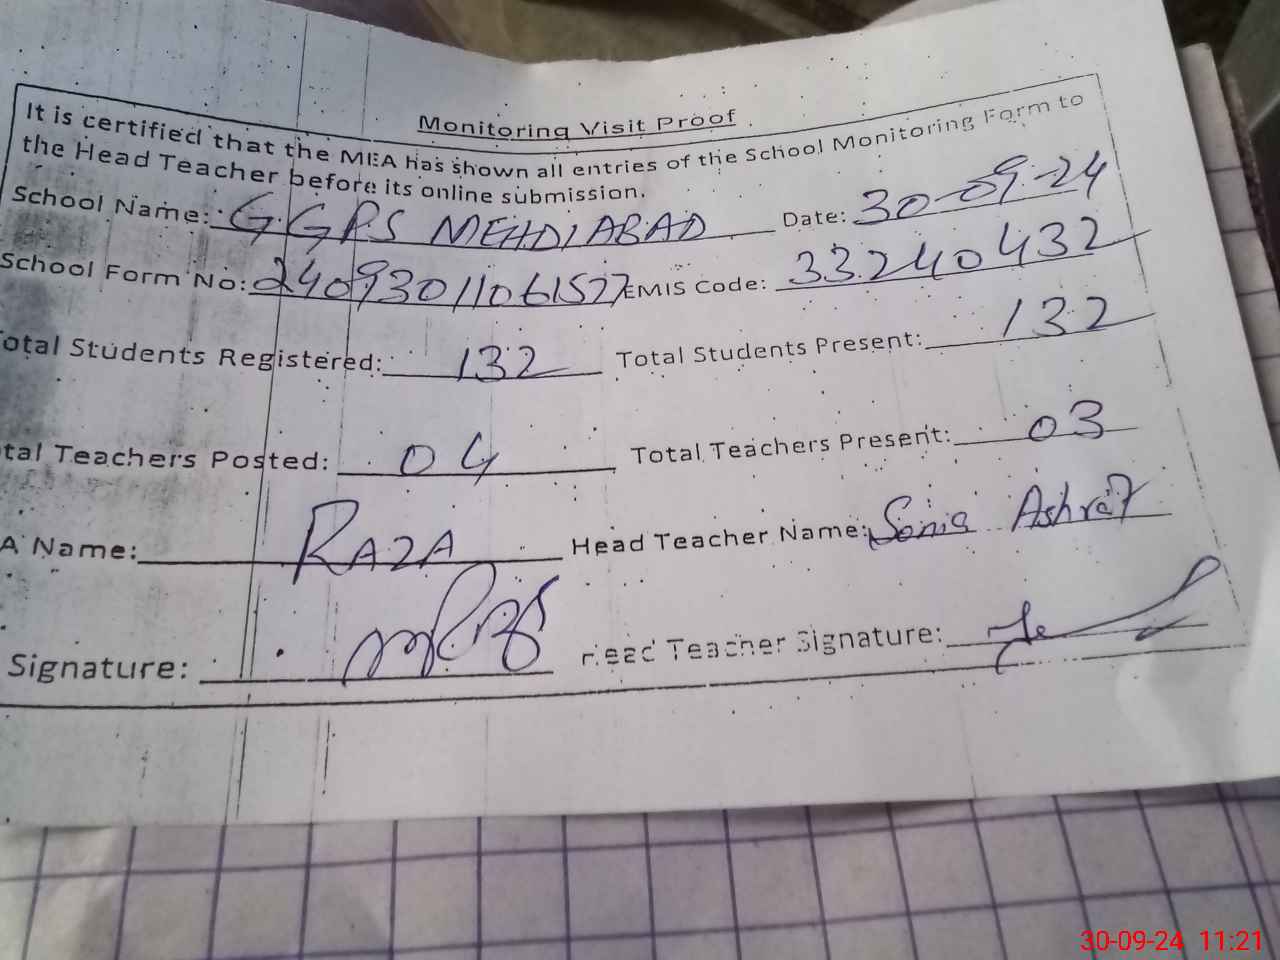 Monitoring Visit Proof
It is certified that the MEA has shown all entries of the School Monitoring Form to
the Head Teacher before its online submission.
School Name: GGPS MEHDIABAD Date: 30-09-24
School Form No: 24093011061577 EMIS Code: 33240432
otal Students Registered: 132 Total Students Present: 132
tal Teachers Posted: 04 Total Teachers Present: 03
A Name: RAZA Head Teacher Name: Sonia Ashraf
Signature: Head Teacher Signature:
30-09-24 11:21